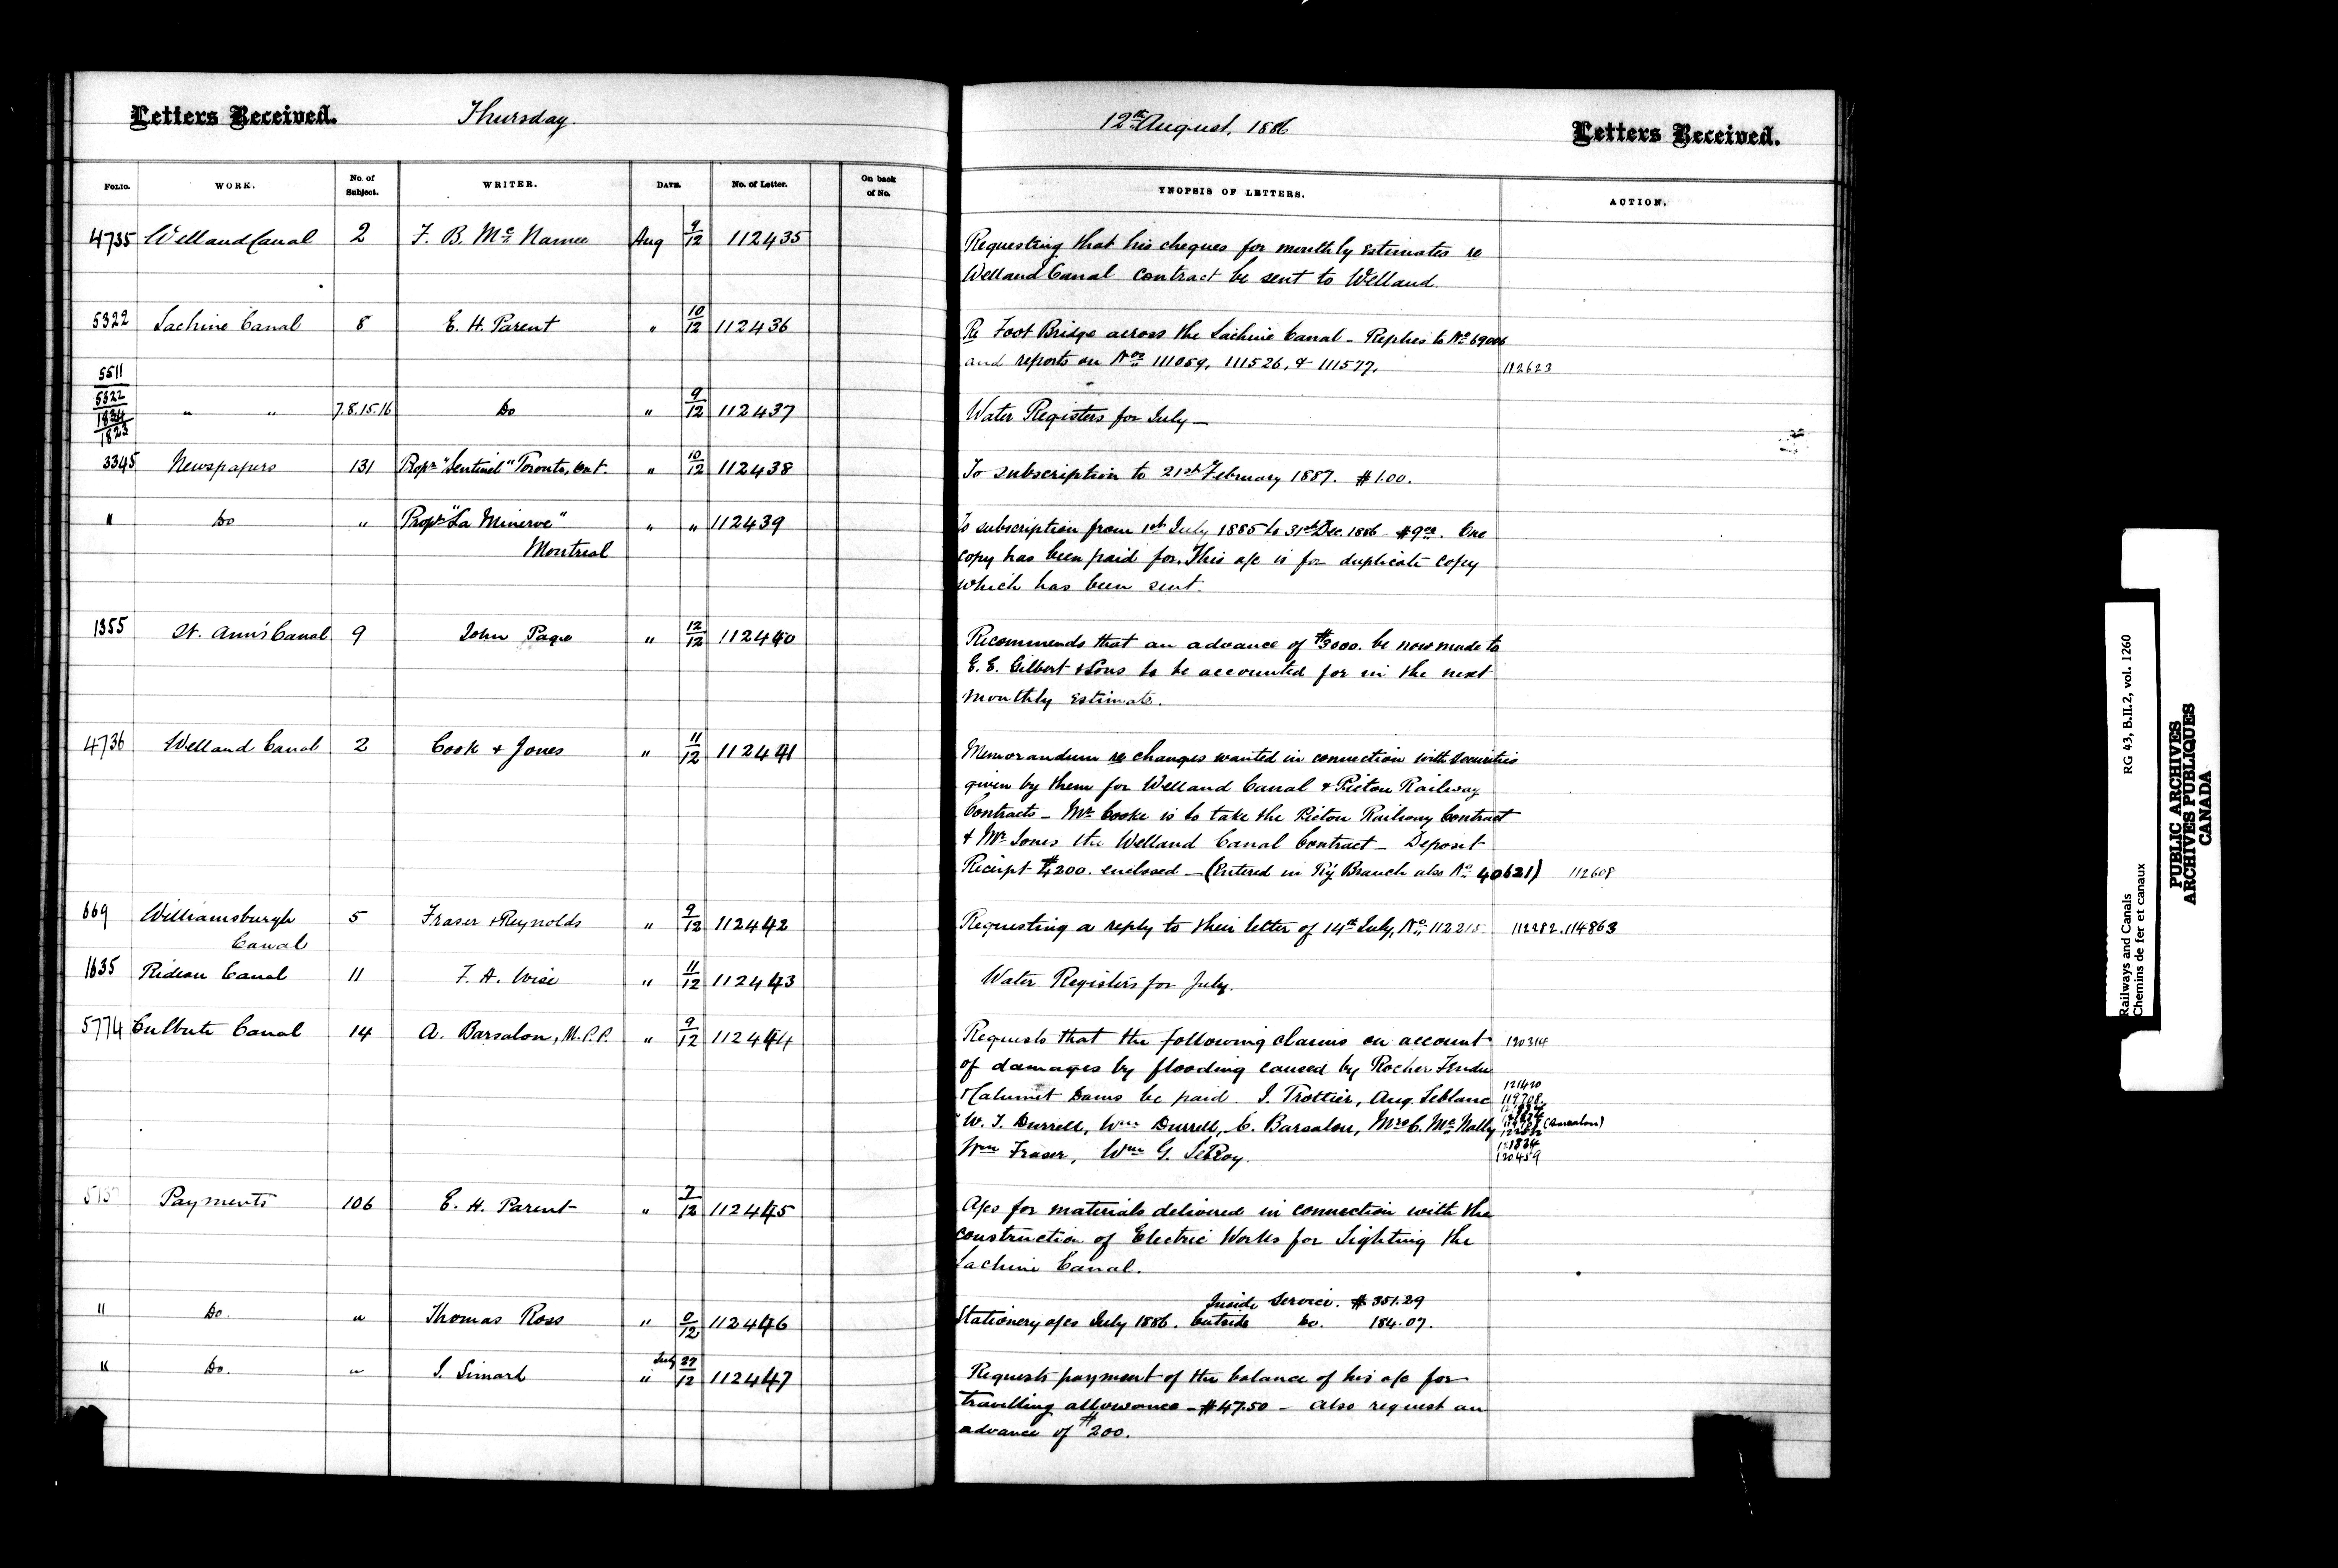 Letters Received. Thursday. 12th August, 1886 Letters Received.
FOLIO. WORK. No. of Subject. WRITER. DATE. No. of Letter. On back of No. YNOPSIS OF LETTERS. ACTION.
4735 Welland Canal 2 F. B. Mc Namee Aug 9/12 112435 Requesting that his cheques for monthly estimates re
Welland Canal contract be sent to Welland.
5322 Lachine Canal 8 E. H. Parent " 10/12 112436 Re Foot Bridge across the Lachine Canal - Replies to No 69006
and reports on Nos 111059, 111526, & 111577. 112623
5511
5322
1834
1823
" " 7.8.15.16 Do " 9/12 112437 Water Registers for July -
3345 Newspapers 131 Propr "Sentinel" Toronto, Ont. " 10/12 112438 To subscription to 21st February 1887. $1.00.
" Do " Propr "La Minerve" " " 112439 To subscription from 1st July 1885 to 31st Dec. 1886 $9.00. One
Montreal copy has been paid for. This a/c is for duplicate copy
which has been sent.
1355 St. Ann's Canal 9 John Page " 12/12 112440 Recommends that an advance of $3000. be now made to
E. E. Gilbert & Sons to be accounted for in the next
monthly estimate.
4736 Welland Canal 2 Cook & Jones " 11/12 112441 Memorandum re changes wanted in connection with securities
given by them for Welland Canal & Pictou Railway
Contracts - Mr Cooke is to take the Pictou Railway Contract
& Mr Jones the Welland Canal Contract - Deposit
Receipt $4200. enclosed - (Entered in Ry Branch also No 40621) 112608
669 Williamsburgh 5 Fraser & Reynolds " 9/12 112442 Requesting a reply to their letter of 14th July, No 112215 112282.114863
Canal
1635 Rideau Canal 11 F. A. Wise " 11/12 112443 Water Registers for July.
5774 Culbute Canal 14 A. Barsalon, M.P.P. " 9/12 112444 Requests that the following claims on account 120314
of damages by flooding caused by Rocher Fendu
& Calumet Dams be paid. J. Trottier, Aug. Leblanc 121420 119708
W. J. Durrell, Wm Durrell, C. Barsalon, Mrs C. Mc Nally (Barsalon)
Wm Fraser, Wm G. LeRoy. 121834 120459
Payments 106 E. H. Parent " 7/12 112445 A/cs for materials delivered in connection with the
construction of Electric Works for Lighting the
Lachine Canal.
" Do. " Thomas Ross " 112446 Stationery a/cs July 1886. Inside Service. $351.29
Outside Do. 184.07.
" Do. " J. Simard July 27/12 112447 Requests payment of the balance of his a/c for
travelling allowance - $47.50 - also request an
advance of $200.
Railways and Canals RG 43, B.II.2, vol. 1260
Chemins de fer et canaux
PUBLIC ARCHIVES
ARCHIVES PUBLIQUES
CANADA